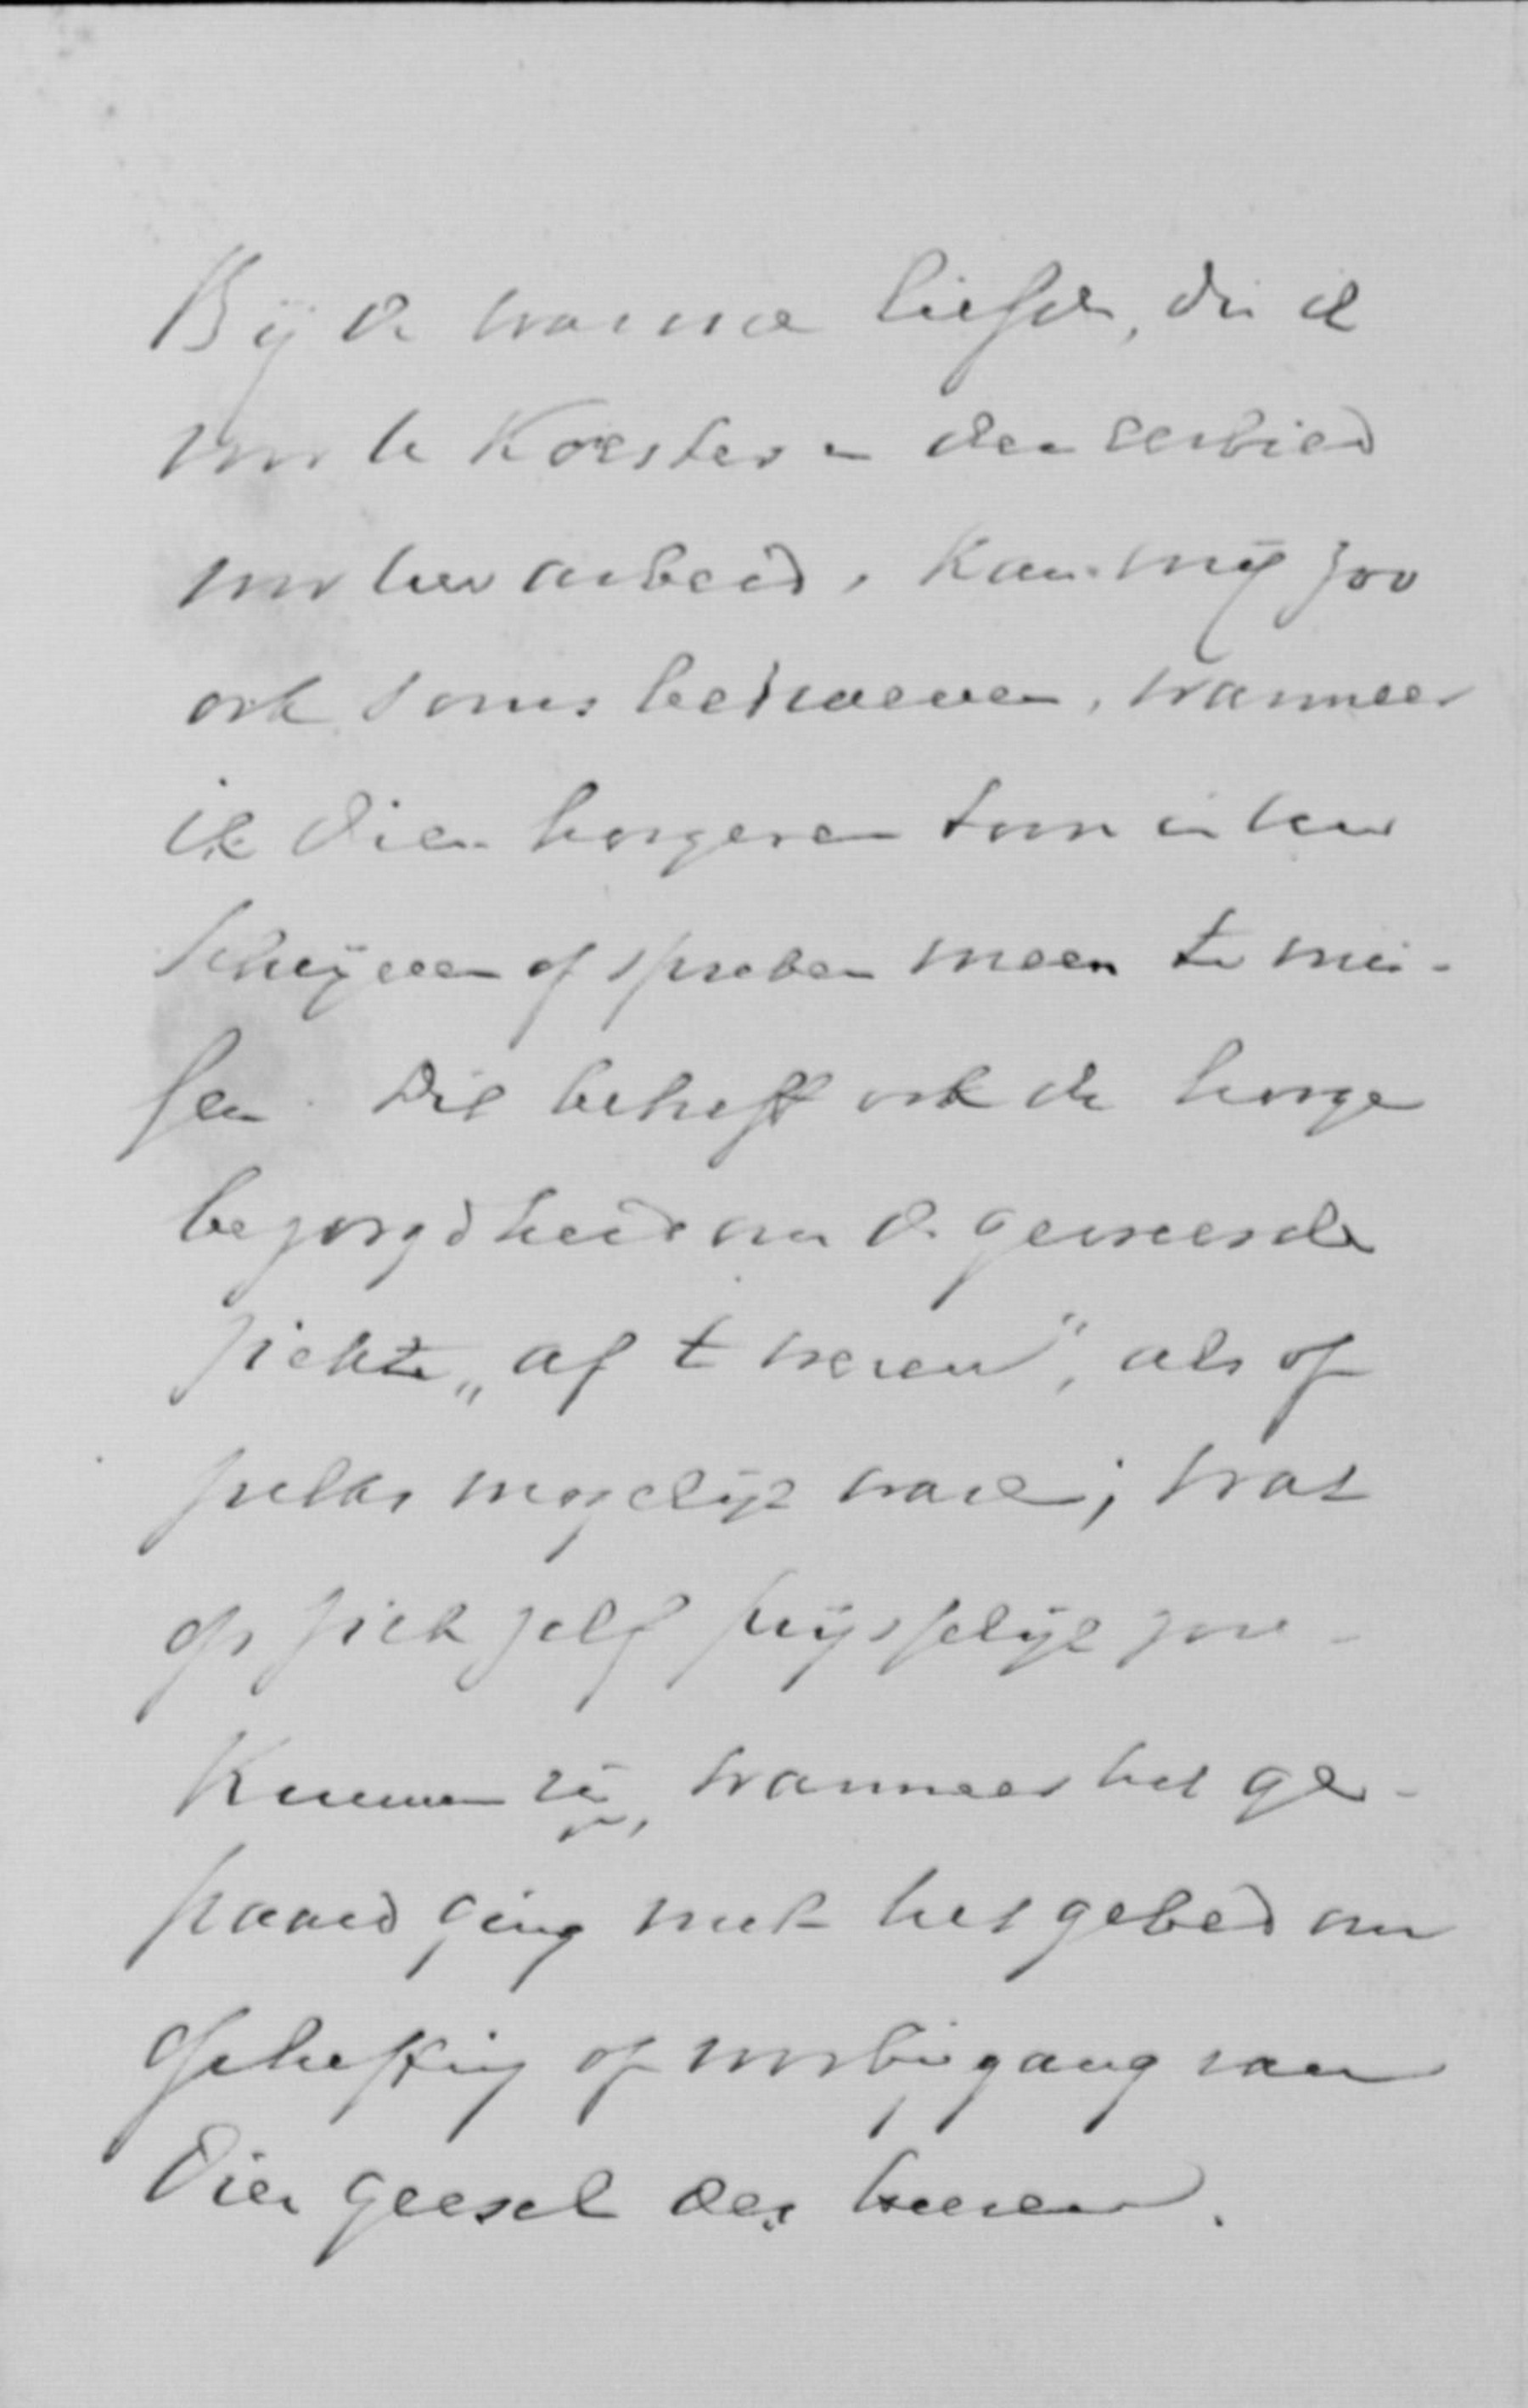 Bij de warme liefde, die ik
voor U koester en den eerbied
voor Uw arbeid, kan mij zoo
ook soms bedroeven, wanneer
ik dien hoogeren toon in Uw
schrijven of spreken meen te mis-
sen. Dit betreft ook de hooge
bezorgdheid om de gevreesde
ziekte „af te weren", als of
zulks mogelijk ware; wat
op zich zelf prijsselijk zou
kunnen zijn, wanneer het ge-
paard ging met het gebed om
opheffing of voorbijgang van
dien geesel des heeren.